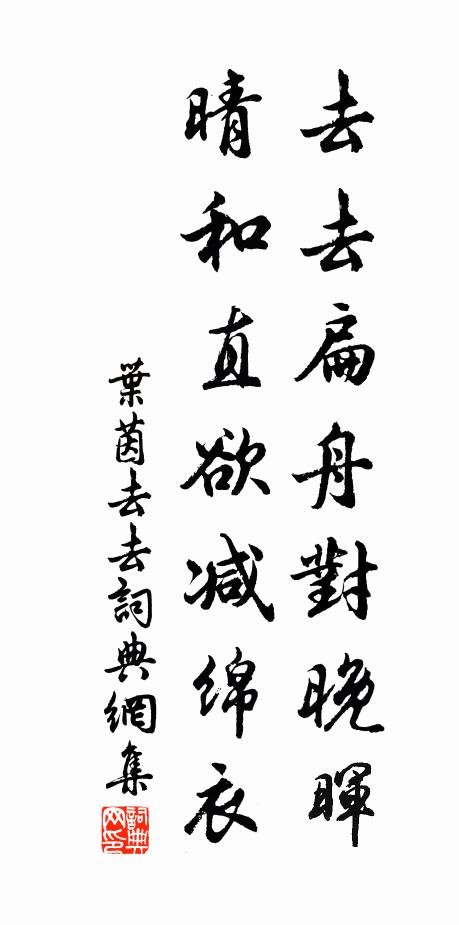 去去扁舟對晚暉
晴和直欲减綿衣
葉茵去去詞典網集
詞典网印